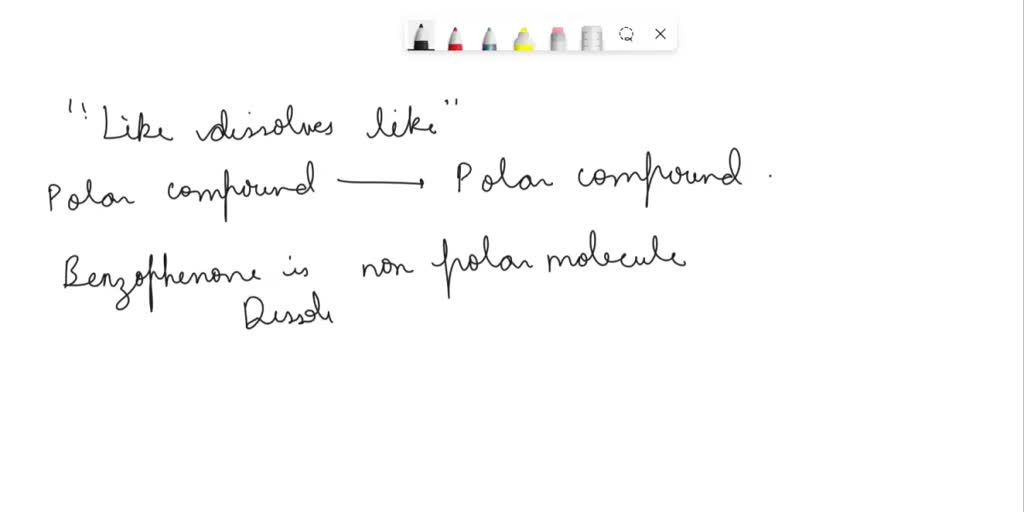 "Like dissolves like"
Polar compound → Polar compound.
Benzophenone is non polar molecule
Dissol